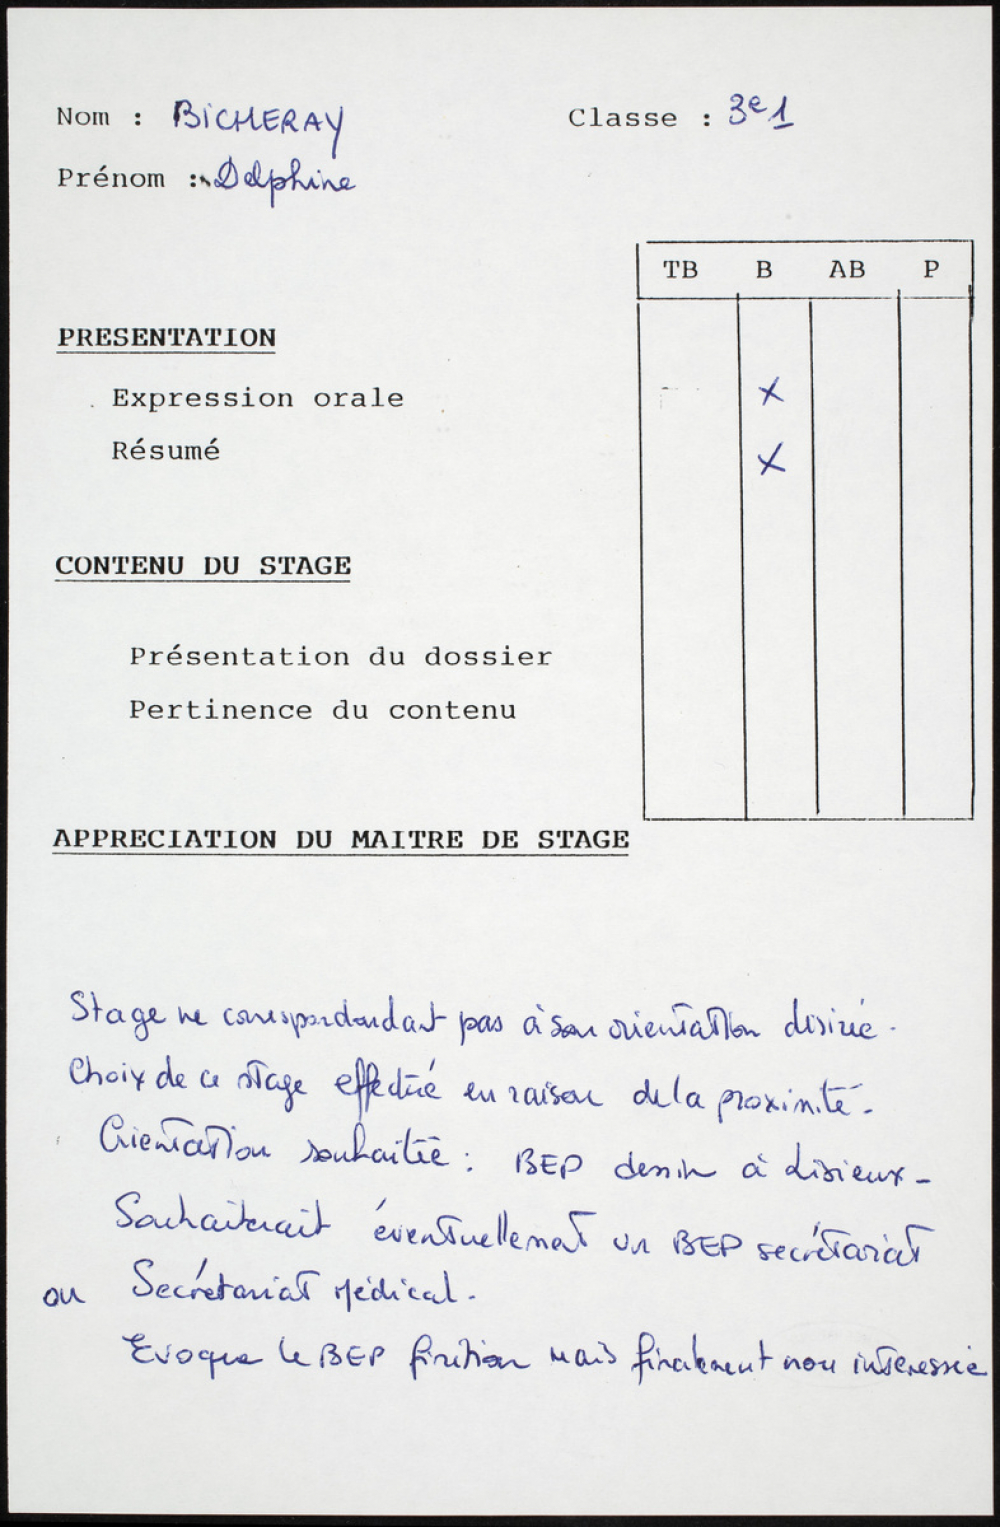 Nom : BICHERAY Classe : 3e1
Prénom : Delphine
TB B AB P
PRESENTATION
Expression orale x
Résumé x
CONTENU DU STAGE
Présentation du dossier
Pertinence du contenu
APPRECIATION DU MAITRE DE STAGE
Stage ne correspondandant pas à son orientation désirée.
Choix de ce stage effectué en raison de la proximité.
Orientation souhaitée : BEP dessin à Lisieux -
Souhaiterait éventuellement un BEP secrétariat
ou Secrétariat Médical.
Evoque le BEP finition mais finalement non intéressée